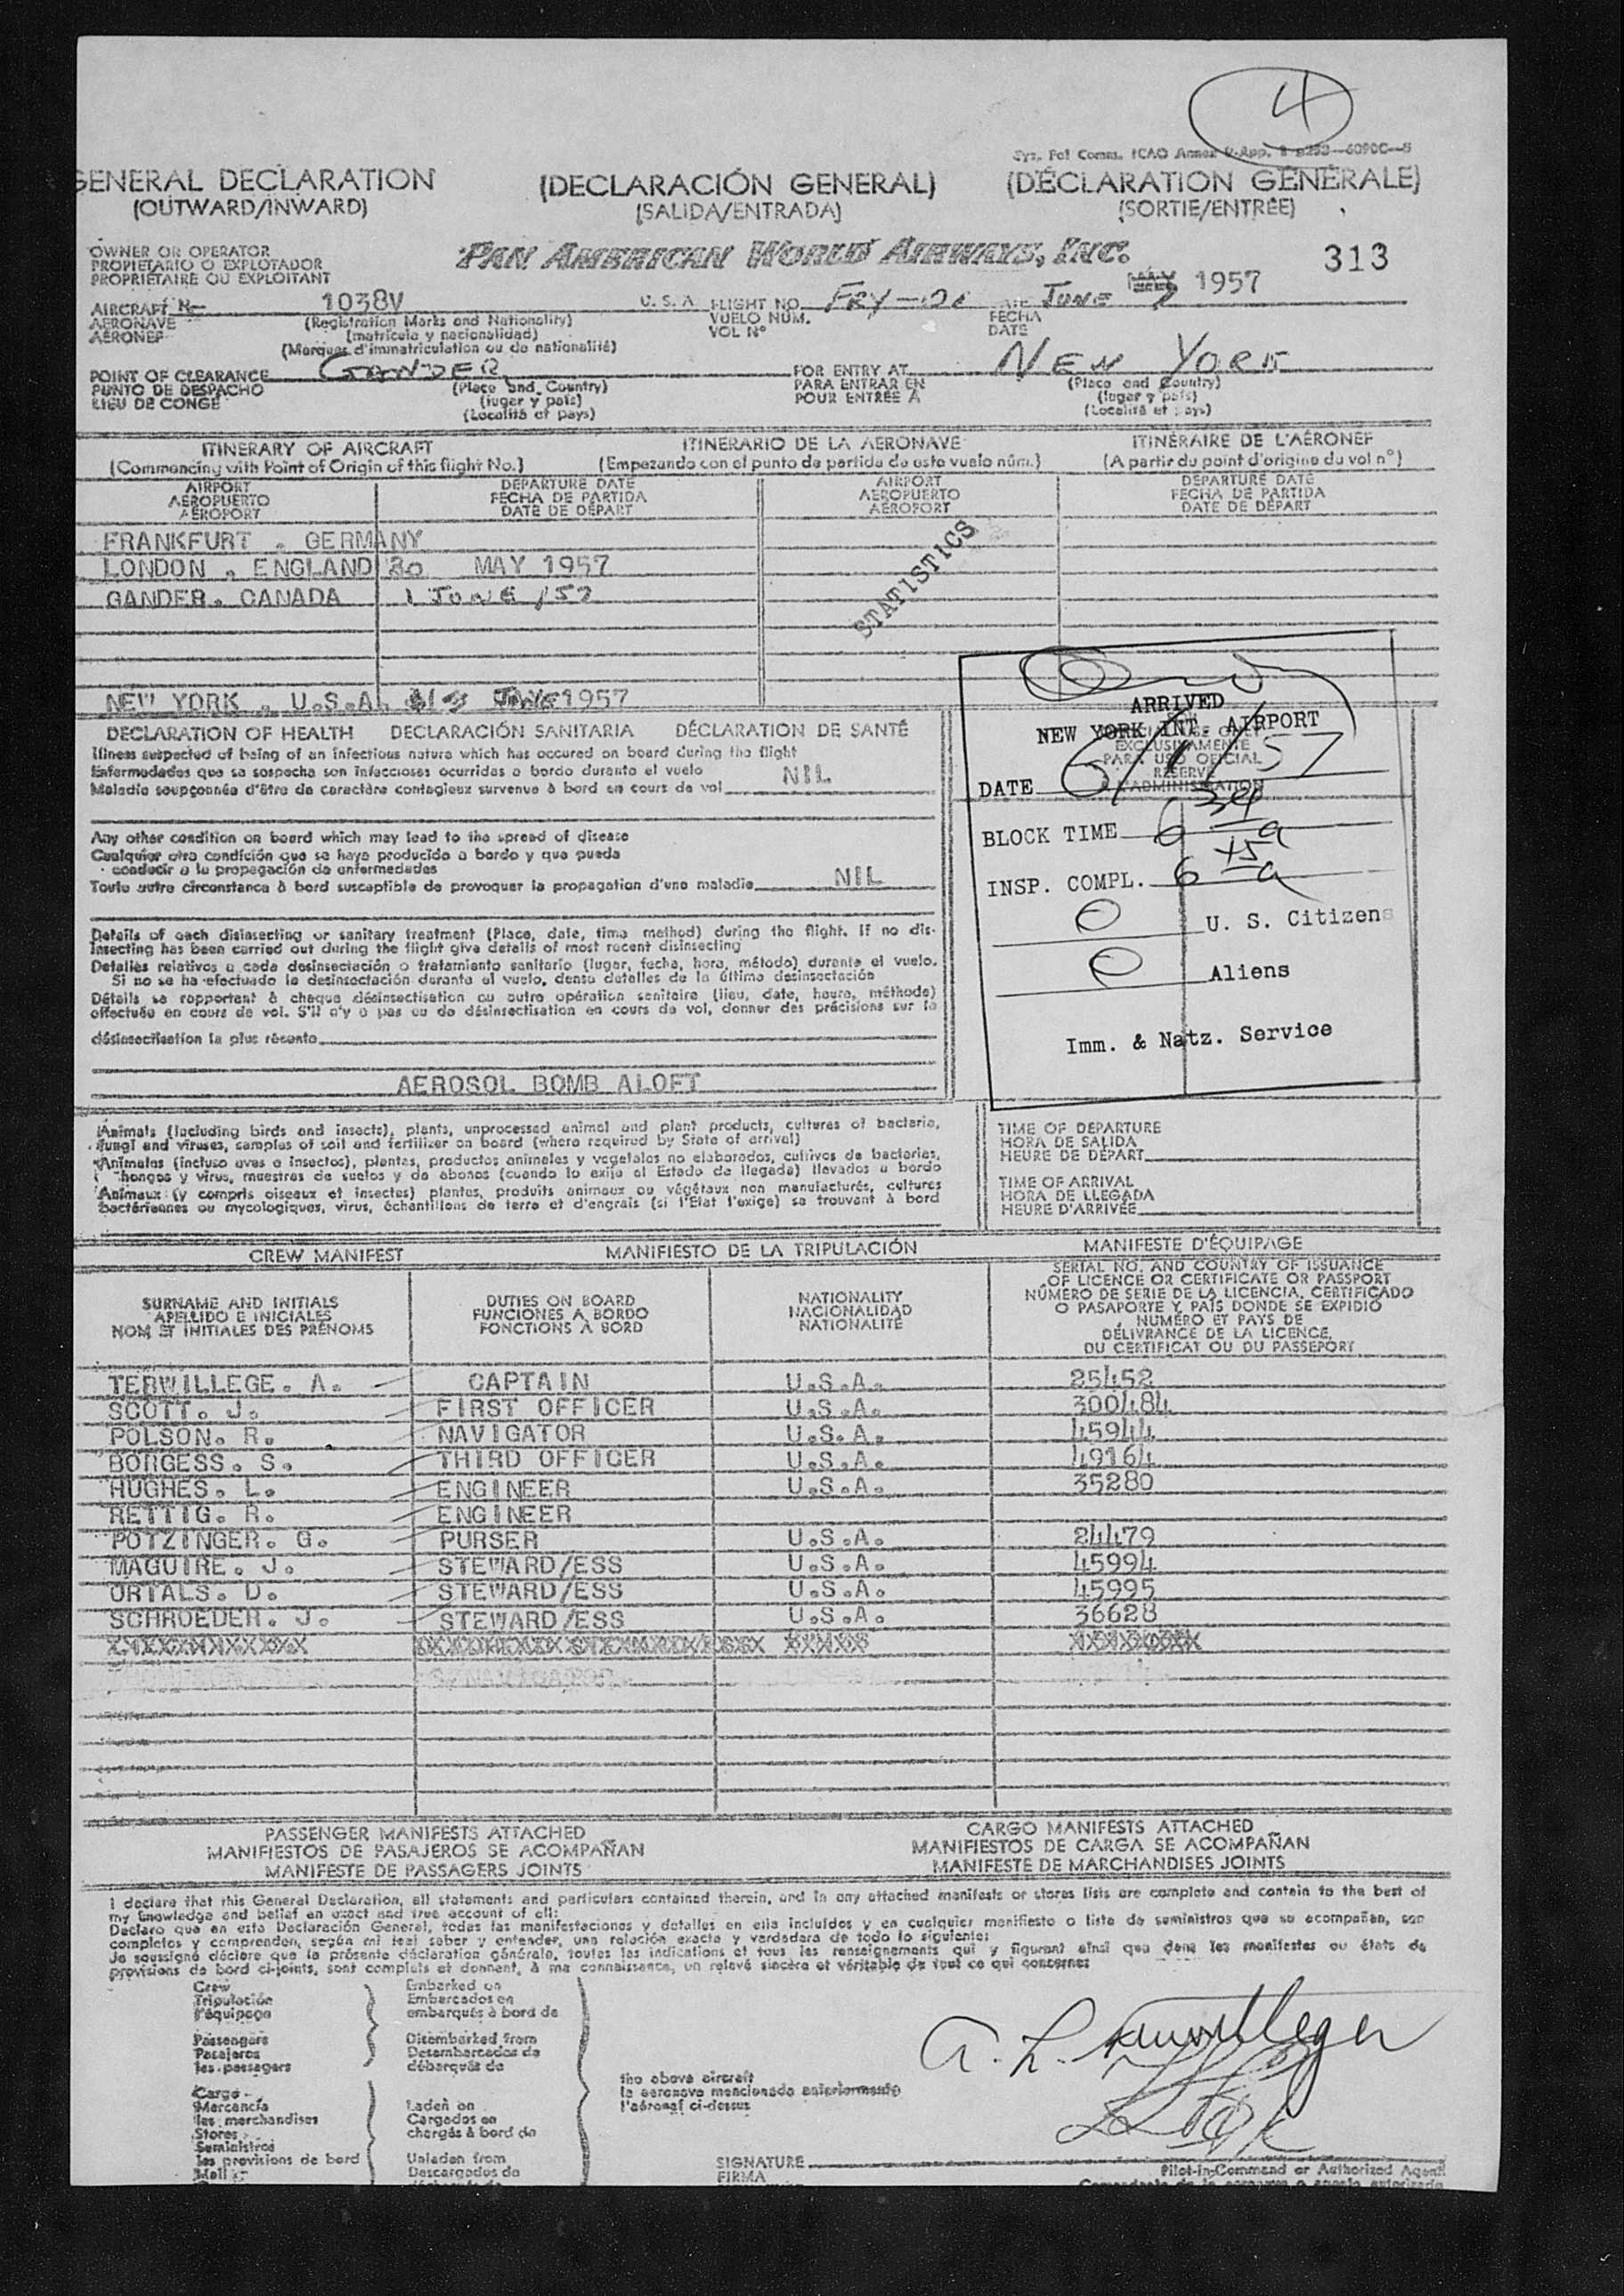 4
GENERAL DECLARATION (DECLARACIÓN GENERAL) (DÉCLARATION GÉNÉRALE)
(OUTWARD/INWARD) (SALIDA/ENTRADA) (SORTIE/ENTRÉE)
OWNER OR OPERATOR
PROPIETARIO O EXPLOTADOR
PROPRIÉTAIRE OU EXPLOITANT
PAN AMERICAN WORLD AIRWAYS, INC. 313
AIRCRAFT N- 1038V U. S. A. FLIGHT NO. JUNE 1957
AERONAVE (Registration Marks and Nationality) VUELO NÚM. FECHA
AÉRONEF (matrícula y nacionalidad) VOL Nº DATE
(Marques d'immatriculation ou de nationalité)
POINT OF CLEARANCE GANDER FOR ENTRY AT NEW YORK
PUNTO DE DESPACHO (Place and Country) PARA ENTRAR EN (Place and Country)
LIEU DE CONGÉ (lugar y país) POUR ENTRÉE À (lugar y país)
(Localité et pays) (Localité et pays)
ITINERARY OF AIRCRAFT ITINERARIO DE LA AERONAVE ITINÉRAIRE DE L'AÉRONEF
(Commencing with Point of Origin of this flight No.) (Empezando con el punto de partida de este vuelo núm.) (A partir du point d'origine du vol nº)
AIRPORT DEPARTURE DATE AIRPORT DEPARTURE DATE
AEROPUERTO FECHA DE PARTIDA AEROPUERTO FECHA DE PARTIDA
AÉROPORT DATE DE DÉPART AÉROPORT DATE DE DÉPART
STATISTICS
FRANKFURT . GERMANY
LONDON . ENGLAND MAY 1957
GANDER. CANADA 1 JUNE /57
NEW YORK . U.S.A. JUNE 1957
DECLARATION OF HEALTH DECLARACIÓN SANITARIA DÉCLARATION DE SANTÉ
Illness suspected of being of an infectious nature which has occured on board during the flight
Enfermedades que se sospecha son infecciosas ocurridas a bordo durante el vuelo
Maladie soupçonnée d'être de caractère contagieux survenue à bord en cours de vol NIL
Any other condition on board which may lead to the spread of disease
Cualquier otra condición que se haya producido a bordo y que pueda
conducir a la propagación de enfermedades
Toute autre circonstance à bord susceptible de provoquer la propagation d'une maladie NIL
Details of each disinsecting or sanitary treatment (Place, date, time method) during the flight. If no dis-
insecting has been carried out during the flight give details of most recent disinsecting
Detalles relativos a cada desinsectación o tratamiento sanitario (lugar, fecha, hora, método) durante el vuelo.
Si no se ha efectuado la desinsectación durante el vuelo, dense detalles de la última desinsectación
Détails se rapportant à chaque désinsectisation ou autre opération sanitaire (lieu, date, heure, méthode)
effectuée en cours de vol. S'il n'y a pas eu de désinsectisation en cours de vol, donner des précisions sur la
désinsectisation la plus récente
AEROSOL BOMB ALOFT
ARRIVED
NEW YORK INT. AIRPORT
EXCLUSIVAMENTE
PARA USO OFICIAL
RÉSERVÉ
À L'ADMINISTRATION
DATE 6/1/57
BLOCK TIME 6 34 a
INSP. COMPL. 6 45 a
0 U. S. Citizens
0 Aliens
Imm. & Natz. Service
Animals (including birds and insects), plants, unprocessed animal and plant products, cultures of bacteria,
fungi and viruses, samples of soil and fertilizer on board (where required by State of arrival)
Animales (incluso aves e insectos), plantas, productos animales y vegetales no elaborados, cultivos de bacterias,
hongos y virus, muestras de suelos y de abonos (cuando lo exija el Estado de llegada) llevados a bordo
Animaux (y compris oiseaux et insectes) plantes, produits animaux ou végétaux non manufacturés, cultures
bactériennes ou mycologiques, virus, échantillons de terre et d'engrais (si l'Etat l'exige) se trouvant à bord
TIME OF DEPARTURE
HORA DE SALIDA
HEURE DE DÉPART
TIME OF ARRIVAL
HORA DE LLEGADA
HEURE D'ARRIVÉE
CREW MANIFEST MANIFIESTO DE LA TRIPULACIÓN MANIFESTE D'ÉQUIPAGE
SURNAME AND INITIALS
APELLIDO E INICIALES
NOM ET INITIALES DES PRÉNOMS
DUTIES ON BOARD
FUNCIONES A BORDO
FONCTIONS À BORD
NATIONALITY
NACIONALIDAD
NATIONALITÉ
SERIAL NO. AND COUNTRY OF ISSUANCE
OF LICENCE OR CERTIFICATE OR PASSPORT
NÚMERO DE SERIE DE LA LICENCIA, CERTIFICADO
O PASAPORTE Y PAÍS DONDE SE EXPIDIÓ
NUMÉRO ET PAYS DE
DÉLIVRANCE DE LA LICENCE,
DU CERTIFICAT OU DU PASSEPORT
TERWILLEGE. A. CAPTAIN U.S.A. 25452
SCOTT. J. FIRST OFFICER U.S.A. 300484
POLSON. R. NAVIGATOR U.S.A. 45944
BORGESS. S. THIRD OFFICER U.S.A. 49164
HUGHES. L. ENGINEER U.S.A. 35280
RETTIG. R. ENGINEER
POTZINGER. G. PURSER U.S.A. 24479
MAGUIRE. J. STEWARD/ESS U.S.A. 45994
ORTALS. D. STEWARD/ESS U.S.A. 45995
SCHROEDER. J. STEWARD/ESS U.S.A. 36628
PASSENGER MANIFESTS ATTACHED CARGO MANIFESTS ATTACHED
MANIFIESTOS DE PASAJEROS SE ACOMPAÑAN MANIFIESTOS DE CARGA SE ACOMPAÑAN
MANIFESTE DE PASSAGERS JOINTS MANIFESTE DE MARCHANDISES JOINTS
I declare that this General Declaration, all statements and particulars contained therein, and in any attached manifests or stores lists are complete and contain to the best of
my knowledge and belief an exact and true account of all:
Declaro que en esta Declaración General, todas las manifestaciones y detalles en ella incluídos y en cualquier manifiesto o lista de suministros que se acompañan, son
completos y comprenden, según mi leal saber y entender, una relación exacta y verdadera de todo lo siguiente:
Je soussigné déclare que la présente déclaration générale, toutes les indications et tous les renseignements qui y figurent ainsi que dans les manifestes ou états de
provisions de bord ci-joints, sont complets et donnent, à ma connaissance, un relevé sincère et véritable de tout ce qui concerne:
Crew Embarked on
Tripulación Embarcados en
l'équipage embarqués à bord de
Passengers Disembarked from
Pasajeros Desembarcados de
les passagers débarqués de
the above aircraft
la aeronave mencionada anteriormente
l'aéronef ci-dessus
Cargo
Mercancía Laden on
les marchandises Cargados en
Stores chargés à bord de
Suministros
les provisions de bord Unladen from
Mail Descargados de
SIGNATURE
FIRMA
Pilot-in-Command or Authorized Agent